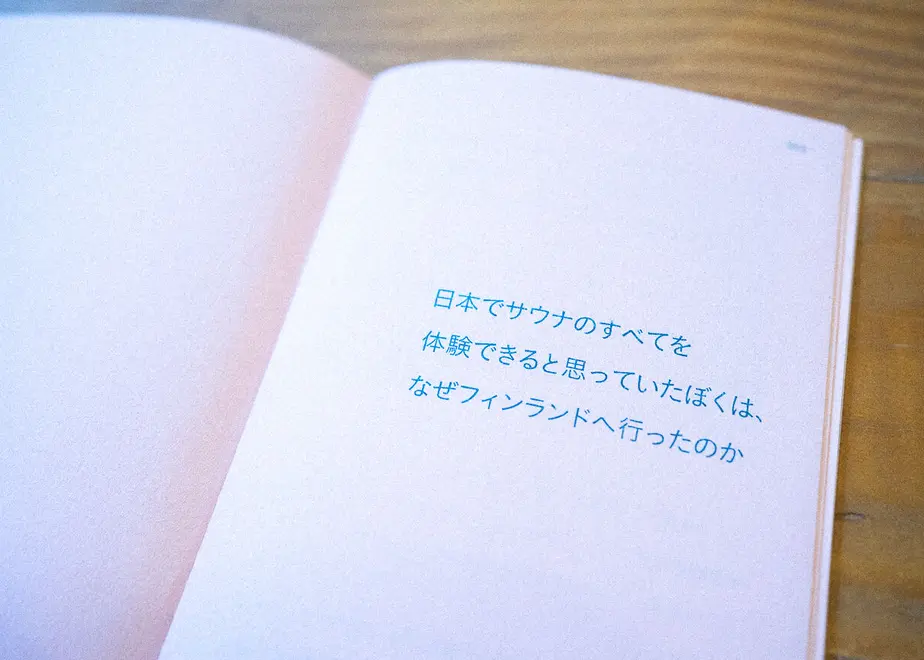 日本でサウナのすべてを
体験できると思っていたぼくは、
なぜフィンランドへ行ったのか